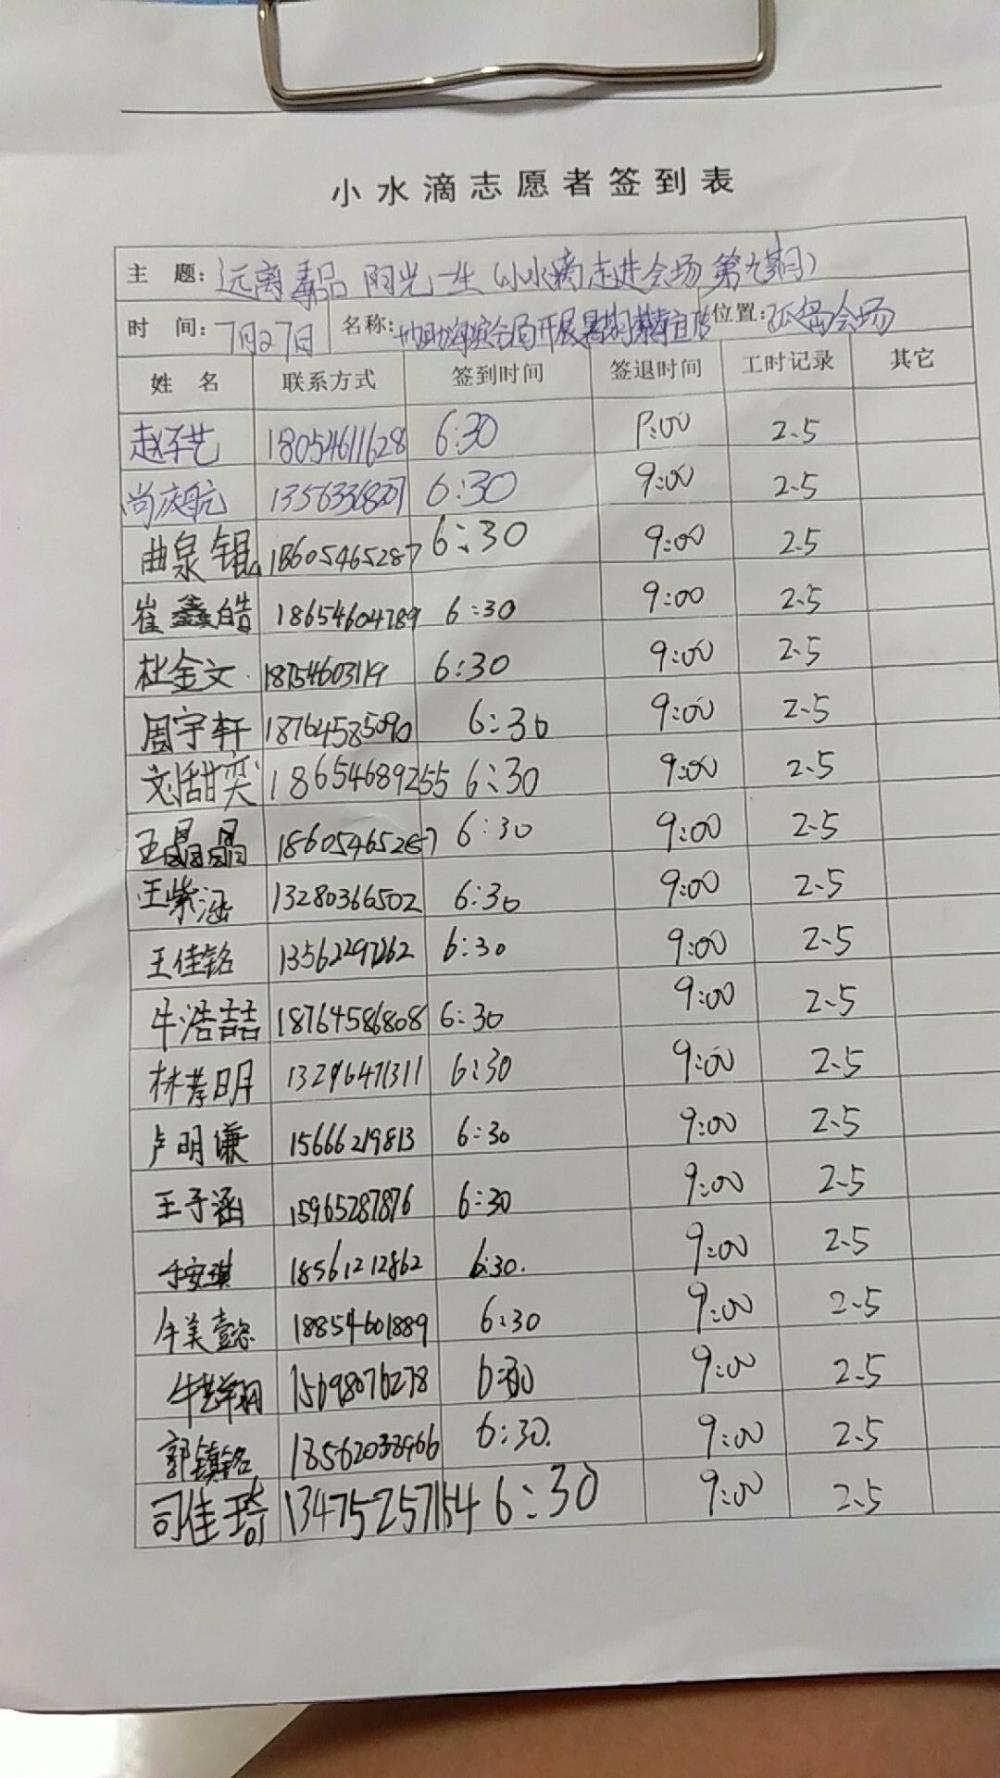 小水滴志愿者签到表
主 题: 远离毒品 阳光一生(小水滴走进会场 第九期)
时 间: 7月27日 名称: 协助海滨分局开展暑期禁毒宣传 位置: 孤岛会场
姓 名 联系方式 签到时间 签退时间 工时记录 其它
赵子艺 18054611628 6:30 9:00 2.5
尚庆航 13563368207 6:30 9:00 2.5
曲泉锟 18605465287 6:30 9:00 2.5
崔鑫皓 18654604789 6:30 9:00 2.5
杜金文 18754603119 6:30 9:00 2.5
周宇轩 18764585090 6:30 9:00 2.5
刘甜奕 18654689255 6:30 9:00 2.5
王晶晶 18605465287 6:30 9:00 2.5
王紫涵 13280366502 6:30 9:00 2.5
王佳铭 13562297262 6:30 9:00 2.5
牛浩喆 18764586808 6:30 9:00 2.5
林孝明 13296471311 6:30 9:00 2.5
卢明谦 15666219813 6:30 9:00 2.5
王子涵 15965287876 6:30 9:00 2.5
于安琪 18561212862 6:30. 9:00 2.5
牛美懿 18854601889 6:30 9:00 2.5
15698076278 6:30 9:00 2.5
郭镇铭 18562033966 6:30. 9:00 2.5
司佳琦 13475257154 6:30 9:00 2.5